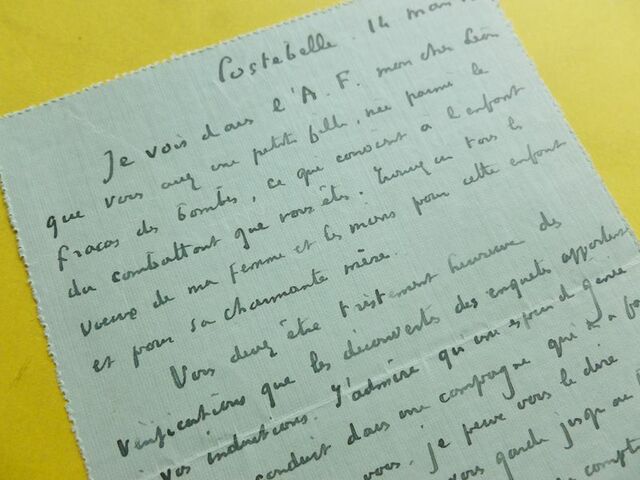 Costebelle. 14 mars
Je vois dans l'A. F. mon cher Léon
que vous avez une petite fille, née parmi le
fracas des bombes, ce qui convient à l'enfant
du combattant que vous êtes. Trouvez ici tous les
voeux de ma femme et les miens pour cette enfant
et pour sa charmante mère.
Vous devez être tristement heureux des
vérifications que les découvertes des enquêtes apportent
vos inductions. J'admire qu'une espèce de génie
conduit dans une campagne qui a
vous. je peux vous le dire
vous garde jusqu'au